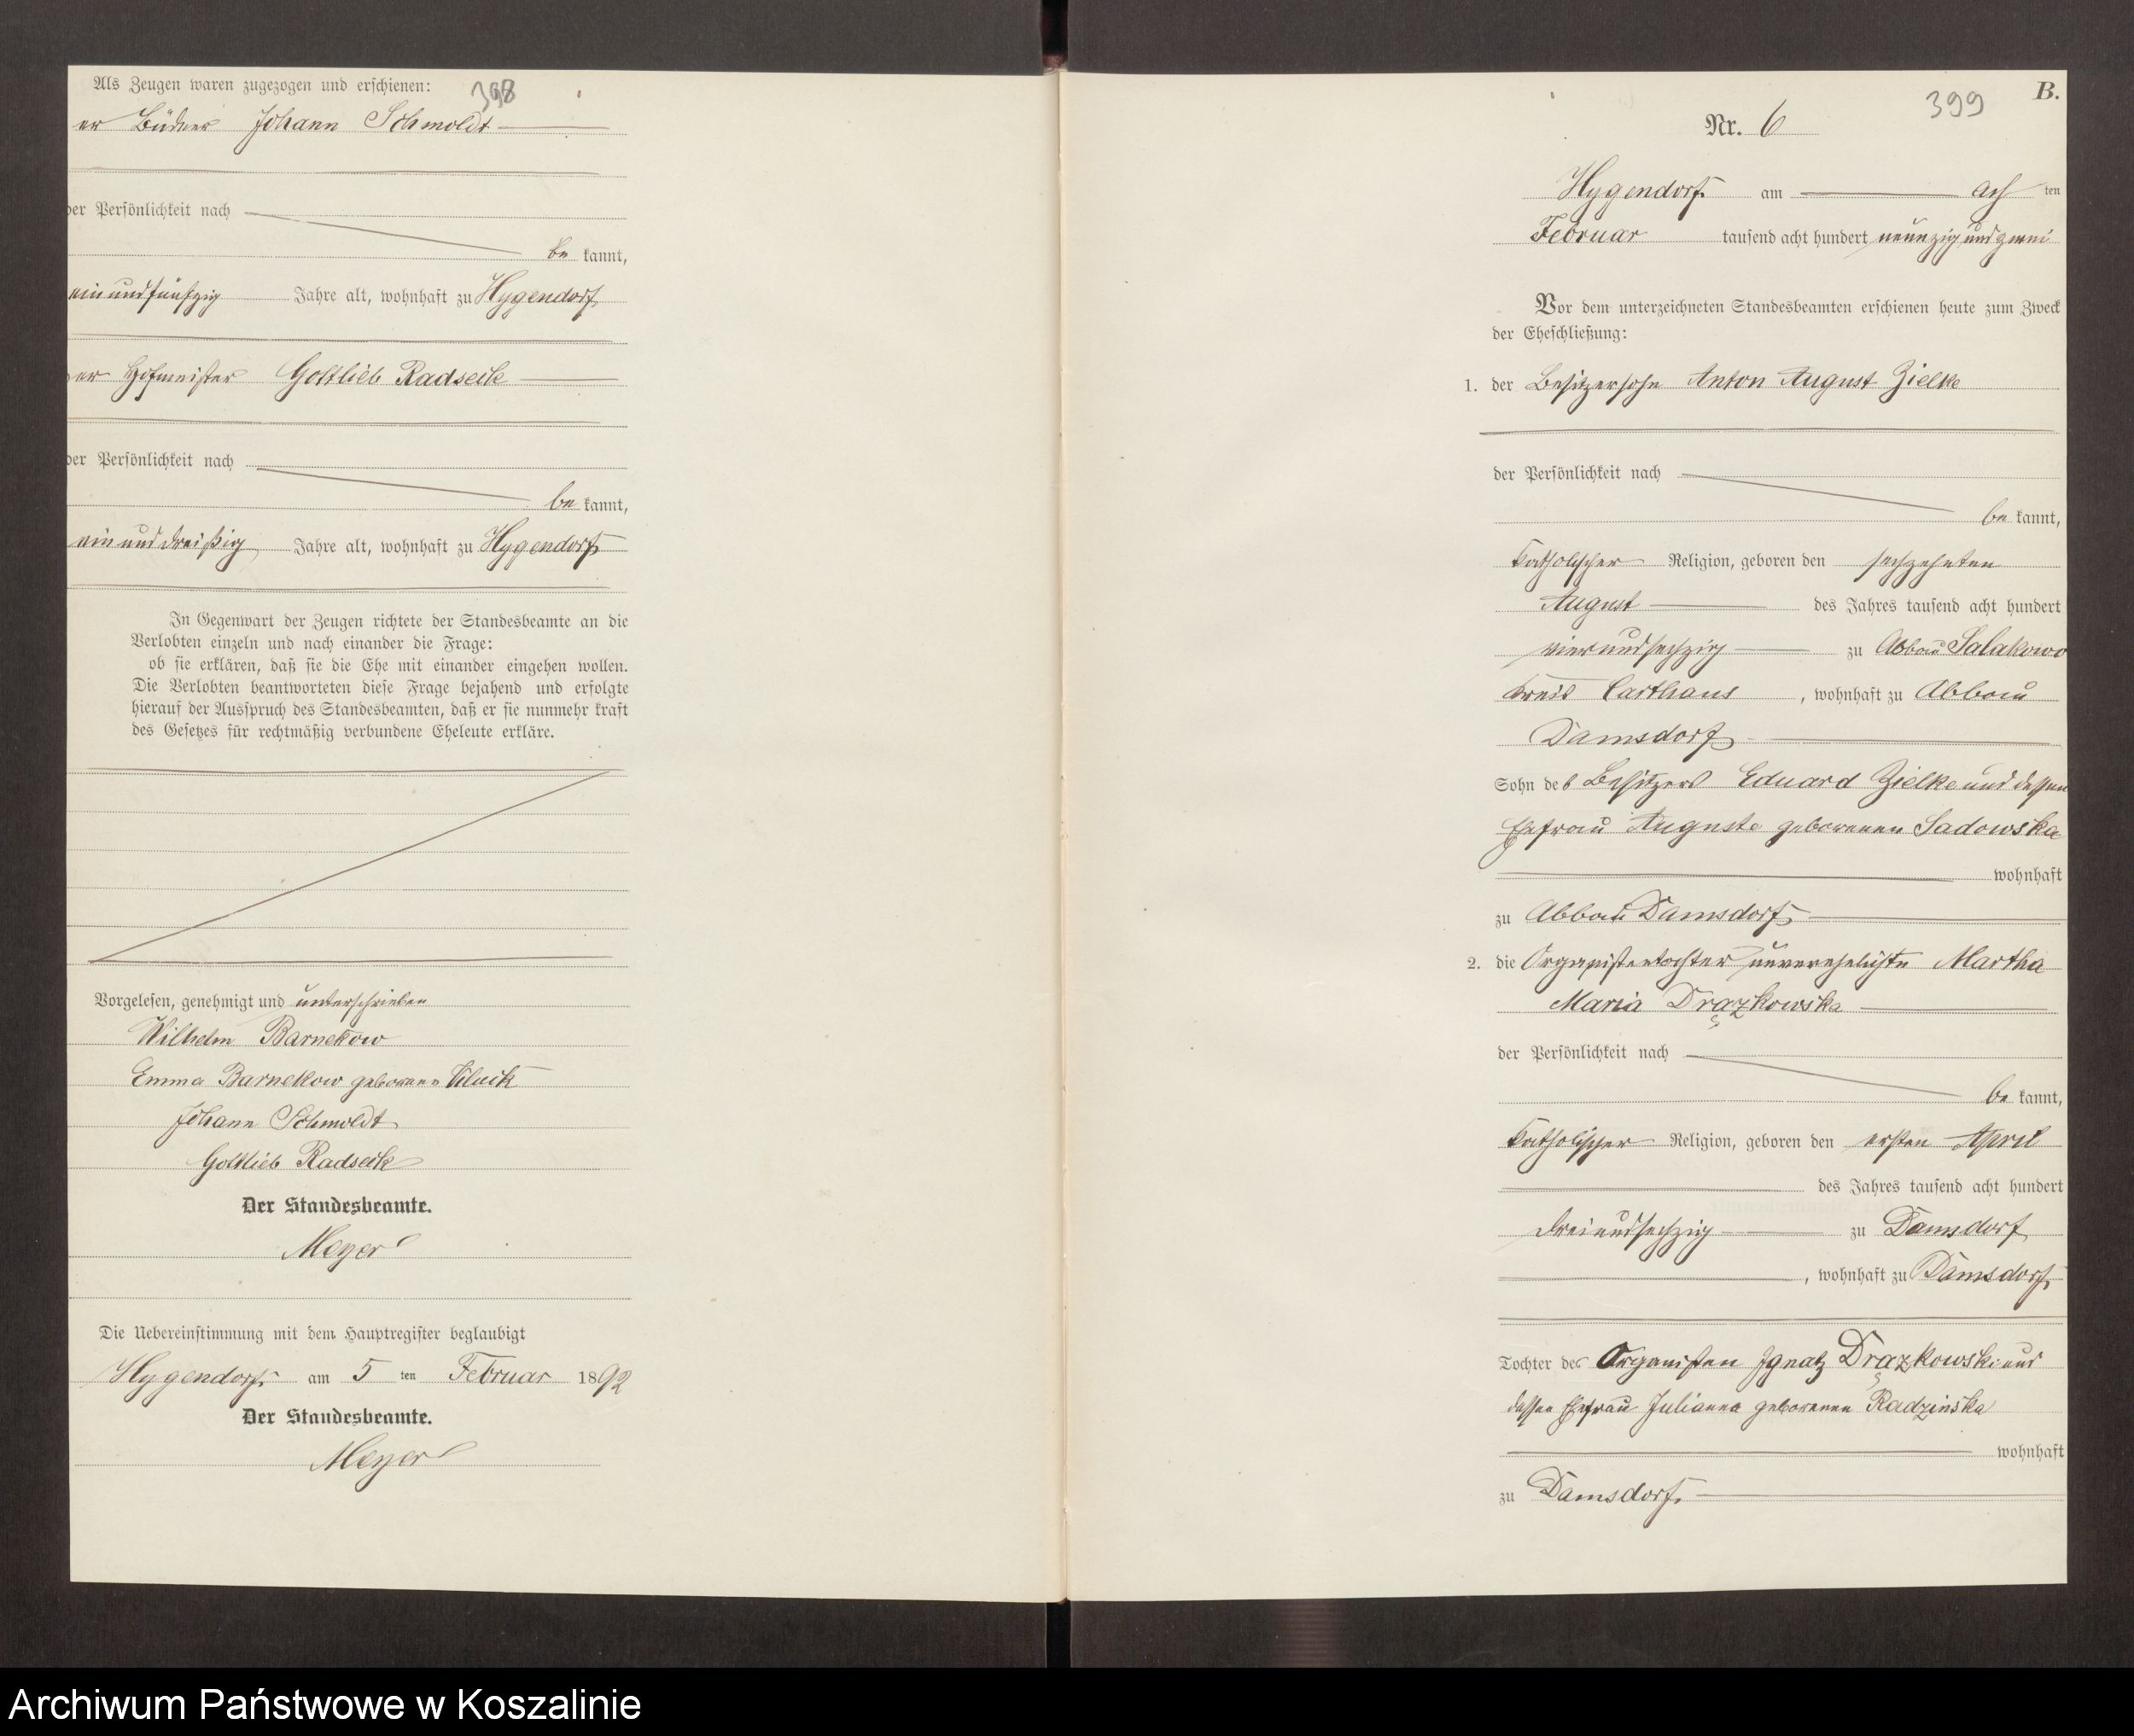 398
Als Zeugen waren zugezogen und erschienen:
er Büdner Johann Schmoldt
der Persönlichkeit nach
be kannt,
ein und fünfzig Jahre alt, wohnhaft zu Hygendorf
er Hofmeister Gottlieb Radseck
der Persönlichkeit nach
be kannt,
ein und dreißig Jahre alt, wohnhaft zu Hygendorf
In Gegenwart der Zeugen richtete der Standesbeamte an die
Verlobten einzeln und nach einander die Frage:
ob sie erklären, daß sie die Ehe mit einander eingehen wollen.
Die Verlobten beantworteten diese Frage bejahend und erfolgte
hierauf der Ausspruch des Standesbeamten, daß er sie nunmehr kraft
des Gesetzes für rechtmäßig verbundene Eheleute erkläre.
Vorgelesen, genehmigt und unterschrieben
Wilhelm Barnekow
Emma Barnekow geborene
Johann Schmoldt
Gottlieb Radseck
Der Standesbeamte.
Meyer
Die Uebereinstimmung mit dem Hauptregister beglaubigt
Hygendorf am 5 ten Februar 1892
Der Standesbeamte.
Meyer
B.
399
Nr. 6
Hygendorf am ach ten
Februar tausend acht hundert neunzig und zwei
Vor dem unterzeichneten Standesbeamten erschienen heute zum Zweck
der Eheschließung:
1. der Besitzersohn Anton August Zielke
der Persönlichkeit nach
be kannt,
katholischer Religion, geboren den sechzehnten
August des Jahres tausend acht hundert
vier und sechzig zu Abbau Salakowo
Kreis Carthaus, wohnhaft zu Abbau
Damsdorf
Sohn des Besitzers Eduard Zielke und dessen
Ehefrau Auguste geborenen Sadowska
wohnhaft
zu Abbau Damsdorf
2. die Organistentochter unverehelichte Martha
Maria Drązkowska
der Persönlichkeit nach
be kannt,
katholischer Religion, geboren den ersten April
des Jahres tausend acht hundert
drei und sechzig zu Damsdorf
, wohnhaft zu Damsdorf
Tochter des Organisten Ignatz Drązkowski und
dessen Ehefrau Julianna geborenen Radzinska
wohnhaft
zu Damsdorf
Archiwum Państwowe w Koszalinie